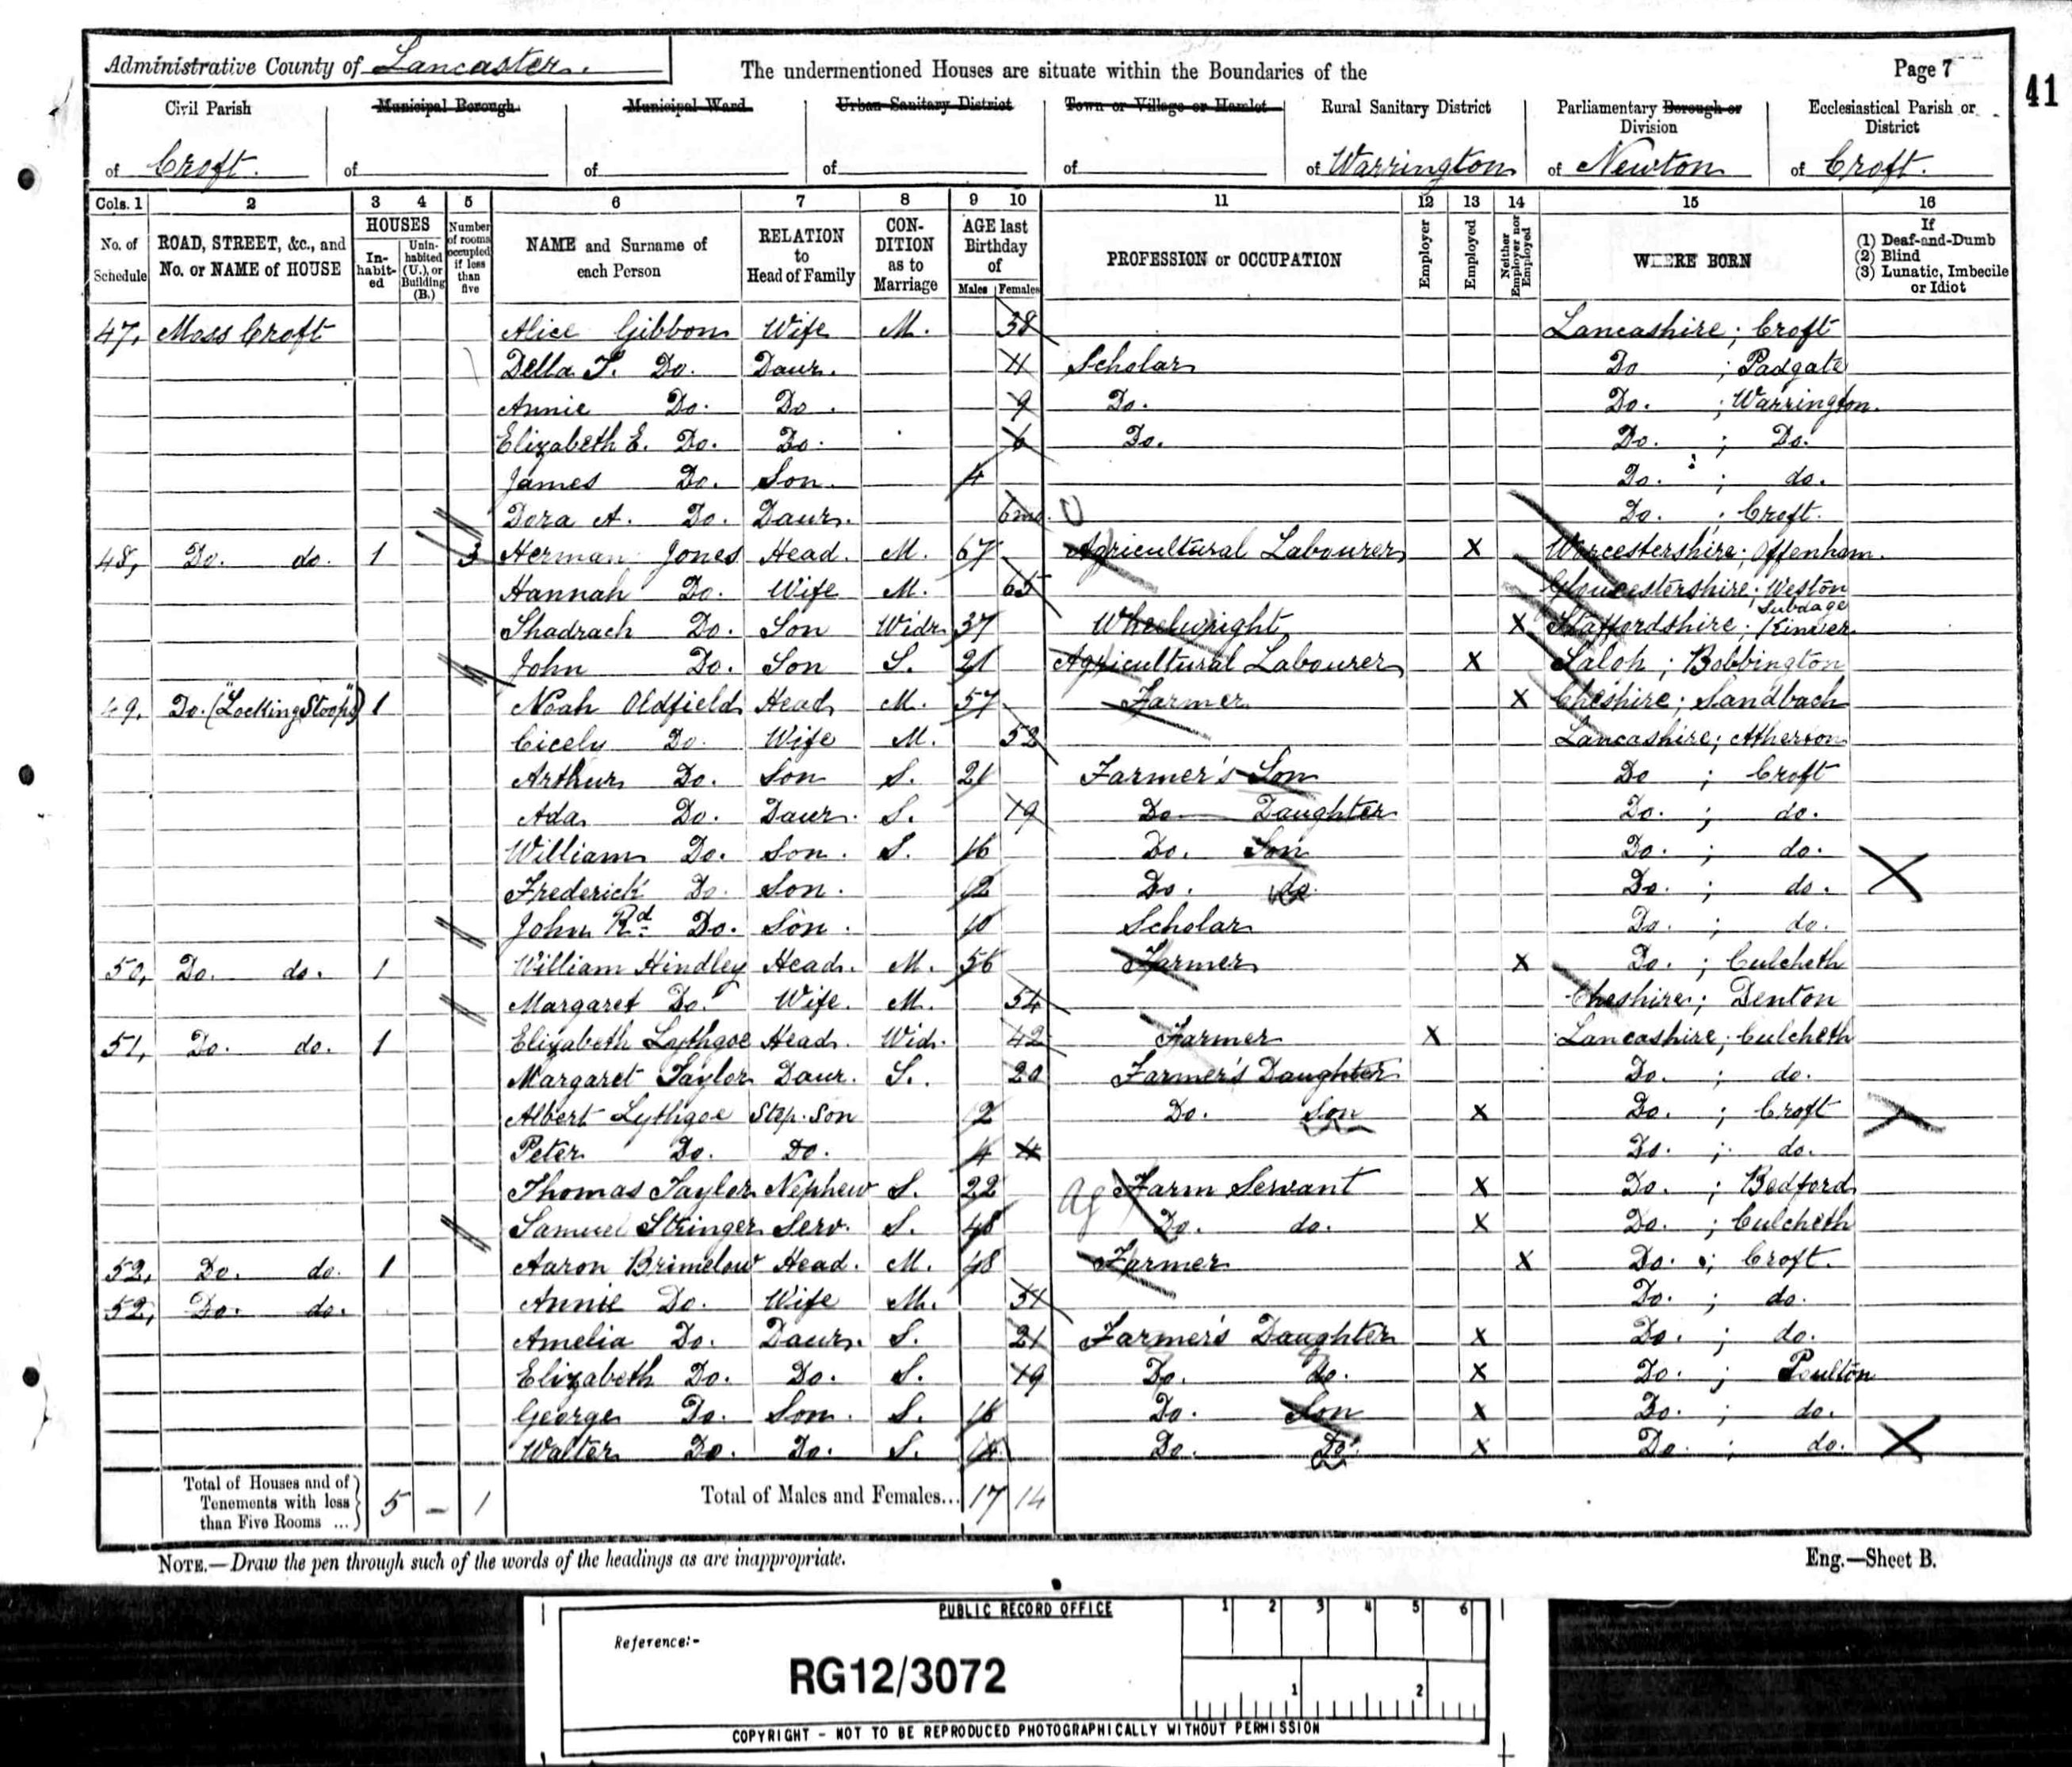 Administrative County of Lancaster.
The undermentioned Houses are situate within the Boundaries of the
Page 7
41
Civil Parish
Municipal Borough
Municipal Ward
Urban Sanitary District
Town or Village or Hamlet
Rural Sanitary District
Parliamentary Borough or Division
Ecclesiastical Parish or District
of Croft.
of
of
of
of
of Warrington
of Newton
of Croft.
Cols. 1 2 3 4 5 6 7 8 9 10 11 12 13 14 15 16
No. of Schedule
ROAD, STREET, &c., and No. or NAME of HOUSE
HOUSES
In-habit-ed
Unin-habited (U.), or Building (B.)
Number of rooms occupied if less than five
NAME and Surname of each Person
RELATION to Head of Family
CON-DITION as to Marriage
AGE last Birthday of
Males Females
PROFESSION or OCCUPATION
Employer
Employed
Neither Employer nor Employed
WHERE BORN
If
(1) Deaf-and-Dumb
(2) Blind
(3) Lunatic, Imbecile or Idiot
47, Moss Croft Alice Gibbon Wife M. 38 Lancashire; Croft
Della Do. Daur. 11 Scholar Do ; Padgate
Annie Do. Do. 9 Do. Do. ; Warrington.
Elizabeth E. Do. Do. 6 Do. Do. ; Do.
James Do. Son. 4 Do. ; do.
Dora A. Do. Daur. 6mo. Do. ; Croft.
48, Do. do. 1 3 Herman Jones Head. M. 67 Agricultural Labourer X Worcestershire; Offenham.
Hannah Do. Wife M. 65 Gloucestershire; Weston Subdage
Shadrach Do. Son Widr. 37 Wheelwright X Staffordshire; Kinver
John Do. Son S. 21 Agricultural Labourer X Saloh; Bobbington
49, Do. ("Locking Stoops") 1 Noah Oldfield Head M. 57 Farmer X Cheshire; Sandbach
Cicely Do. Wife M. 52 Lancashire; Atherton
Arthur Do. Son S. 21 Farmer's Son Do ; Croft
Ada Do. Daur. S. 19 Do. Daughter Do. ; do.
William Do. Son. S. 16 Do. Son Do. ; do.
Frederick Do. Son. 12 Do. do. Do. ; do. X
John Rd. Do. Son. 10 Scholar Do. ; do.
50, Do. do. 1 William Hindley Head. M. 56 Farmer X Do. ; Culcheth
Margaret Do. Wife. M. 54 Cheshire; Denton
51, Do. do. 1 Elizabeth Lythgoe Head. Wid. 42 Farmer X Lancashire; Culcheth
Margaret Taylor Daur. S. 20 Farmer's Daughter Do. ; do.
Albert Lythgoe Step-Son 12 Do. Son X Do. ; Croft X
Peter Do. Do. 4 4 Do. ; do.
Thomas Taylor Nephew S. 22 Ag Farm Servant X Do. ; Bedford
Samuel Stringer Serv. S. 48 Do. do. X Do. ; Culcheth
52, Do. do. 1 Aaron Brimelow Head. M. 48 Farmer X Do. ; Croft.
52, Do. do. Annie Do. Wife M. 51 Do. ; do.
Amelia Do. Daur. S. 21 Farmer's Daughter X Do. ; do.
Elizabeth Do. Do. S. 19 Do. do. X Do. ; Poulton
George Do. Son. S. 16 Do. Son X Do. ; do.
Walter Do. Do. S. 14 Do. Do. X Do. ; do. X
Total of Houses and of Tenements with less than Five Rooms ... 5 – 1
Total of Males and Females... 17 14
NOTE.—Draw the pen through such of the words of the headings as are inappropriate.
Eng.—Sheet B.
PUBLIC RECORD OFFICE
1 2 3 4 5 6
Reference:-
RG12/3072
1 2
COPYRIGHT - NOT TO BE REPRODUCED PHOTOGRAPHICALLY WITHOUT PERMISSION